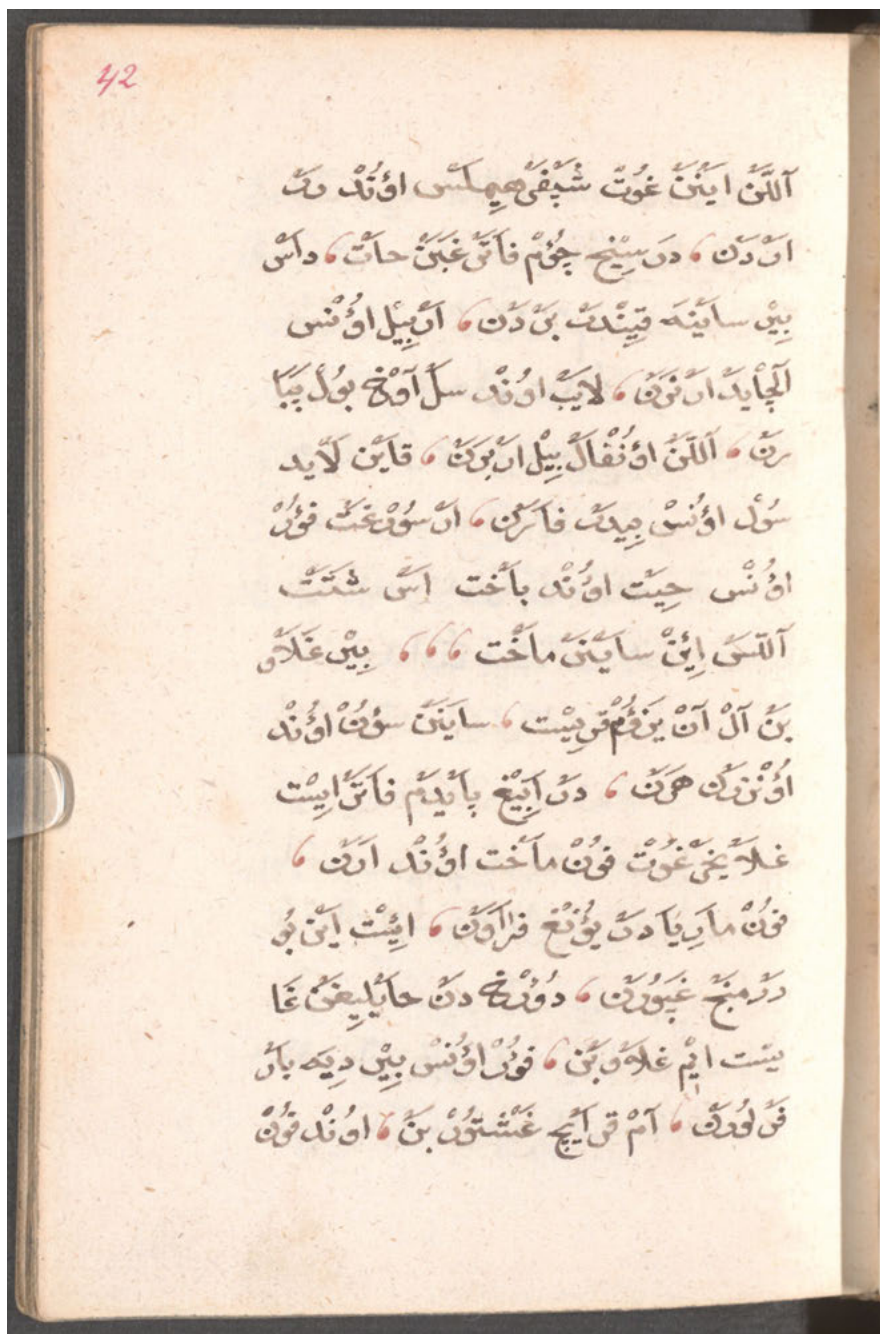 42
آللَنْ اينَنْ غُوتْ شَپْفَرْ هيملس اوُنْد دِرْ
اَرْدَن ، دَر سِيْخ چُوْمْ فاتَرْ غَبَنْ حاتْ ، داسْ
بِيْرْ ساينَه قِيندَرْ بَرْدَن ، اَرْ بِيلْ اوُنْس
آلچايد اَرنَرَن ، لايب اوُنْد سَلْ آوْخ بوُلْ بَبَا
رن ، آللَنْ اوُنْفالْ بِيلْ اَرْ بَرَنْ ، قاين لايد
سوُل اوُنْسْ بِيدَرْ فارَن ، اَرْ سوُرْغَتْ فوُرْ
اوُنْس حِيت اوُنْد باخت اِسْ شتَتْ
آللَسْ اِيْنْ ساينَرْ ماخْت ،،، بِيْر غَلاو
بَنْ آلْ آنْ يَزوُمْ قرِيسْت ، ساينَنْ سوُنْ اوُنْد
اوُنْزرَن هَرَنْ ، دَرْ اَبِيغ بايدَمْ فاتَرْ اِيسْت
غلايخَرْ غوُتْ فوُنْ ماخت اوُنْد اَرَن ،
فوُنْ مارِيَا دَرْ يوُنْغ فراوَن ، اِيْسْت اَيْن بو
رَرْ منْچ غَبوُرَن ، دوُرْخ دَن حايلِيغَنْ غا
يست ايم غلاوبَن ، فوُرْ اوُنْسْ بِيْر دِيَه بارْ
فَرْلوُرَن ، آمْ قرايچ غَشْتوُرْبَنْ ، اوُنْد فوُنْ